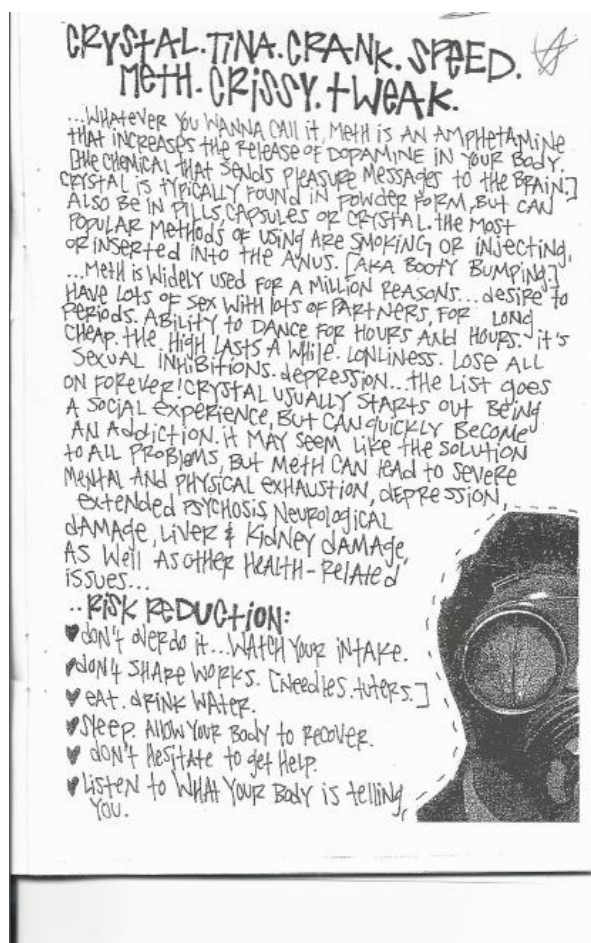 CRYSTAL.TINA.CRANK.SPEED.
METH.CRISSY.TWEAK.
...WHATEVER YOU WANNA CALL IT, METH IS AN AMPHETAMINE
THAT INCREASES THE RELEASE OF DOPAMINE IN YOUR BODY.
[THE CHEMICAL THAT SENDS PLEASURE MESSAGES TO THE BRAIN.]
CRYSTAL IS TYPICALLY FOUND IN POWDER FORM, BUT CAN
ALSO BE IN PILLS, CAPSULES OR CRYSTAL. THE MOST
POPULAR METHODS OF USING ARE SMOKING OR INJECTING,
OR INSERTED INTO THE ANUS. [AKA BOOTY BUMPING]
...METH IS WIDELY USED FOR A MILLION REASONS... DESIRE TO
HAVE LOTS OF SEX WITH LOTS OF PARTNERS, FOR LONG
PERIODS. ABILITY TO DANCE FOR HOURS AND HOURS. IT'S
CHEAP. THE HIGH LASTS A WHILE. LONLINESS. LOSE ALL
SEXUAL INHIBITIONS. DEPRESSION... THE LIST GOES
ON FOREVER! CRYSTAL USUALLY STARTS OUT BEING
A SOCIAL EXPERIENCE, BUT CAN QUICKLY BECOME
AN ADDICTION. IT MAY SEEM LIKE THE SOLUTION
TO ALL PROBLEMS, BUT METH CAN LEAD TO SEVERE
MENTAL AND PHYSICAL EXHAUSTION, DEPRESSION,
EXTENDED PSYCHOSIS, NEUROLOGICAL
DAMAGE, LIVER & KIDNEY DAMAGE,
AS WELL AS OTHER HEALTH-RELATED
ISSUES...
..RISK REDUCTION:
♥ DON'T OVERDO IT... WATCH YOUR INTAKE.
♥ DON'T SHARE WORKS. [NEEDLES.TUTERS.]
♥ EAT. DRINK WATER.
♥ SLEEP. ALLOW YOUR BODY TO RECOVER.
♥ DON'T HESITATE TO GET HELP.
♥ LISTEN TO WHAT YOUR BODY IS TELLING
YOU.